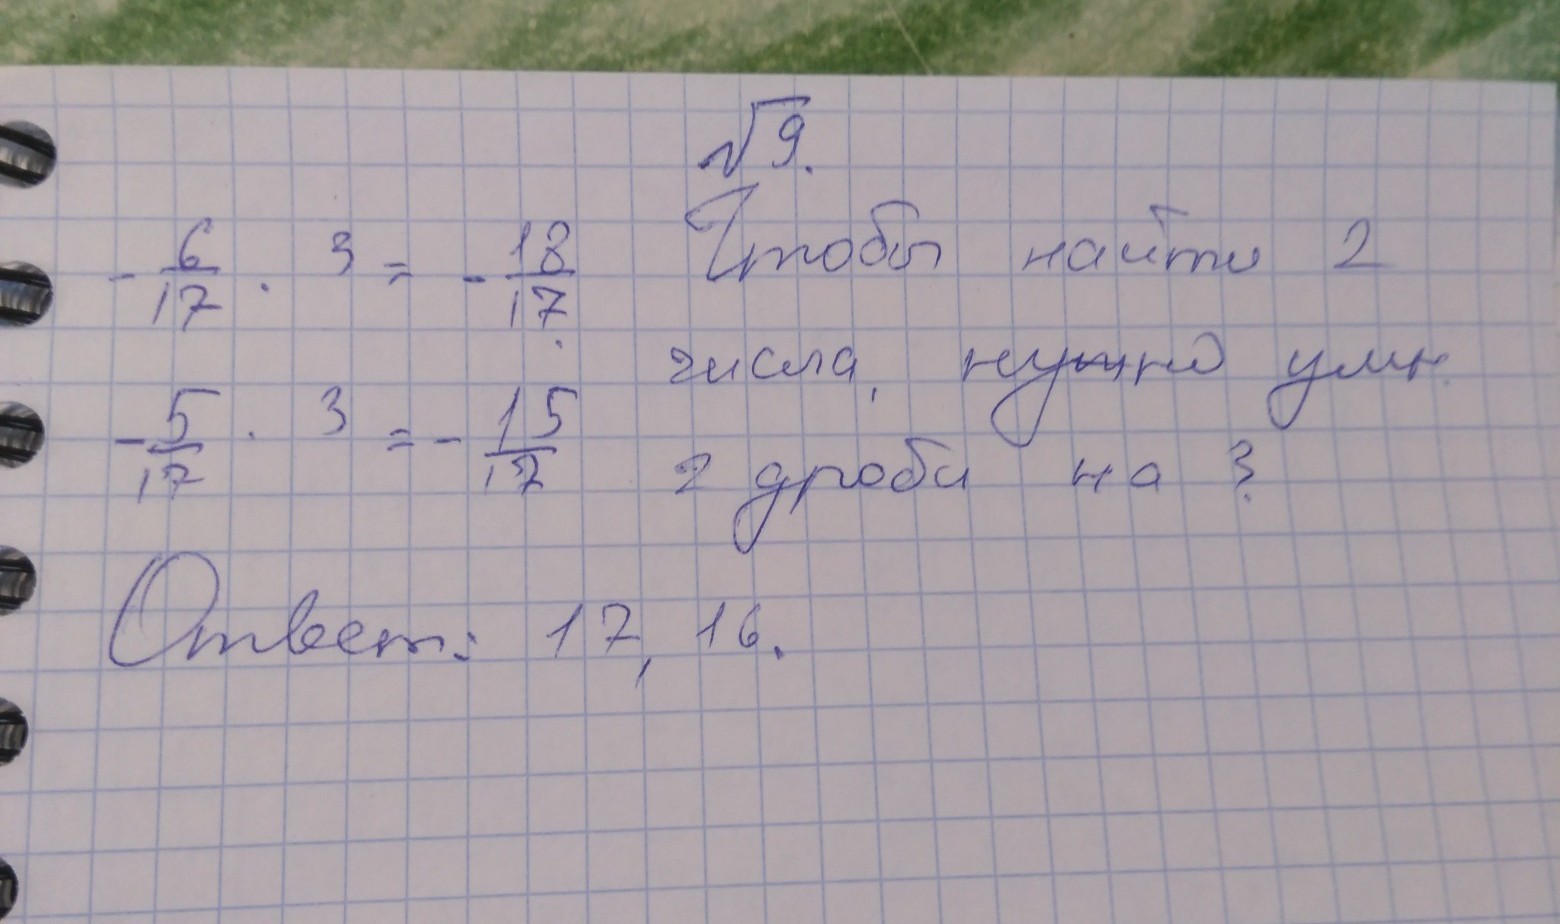 √9.
-6/17 · 3 = -18/17
-5/17 · 3 = -15/17
Чтобы найти 2
числа, нужно умн.
2 дроби на 3.
Ответ: 17, 16.